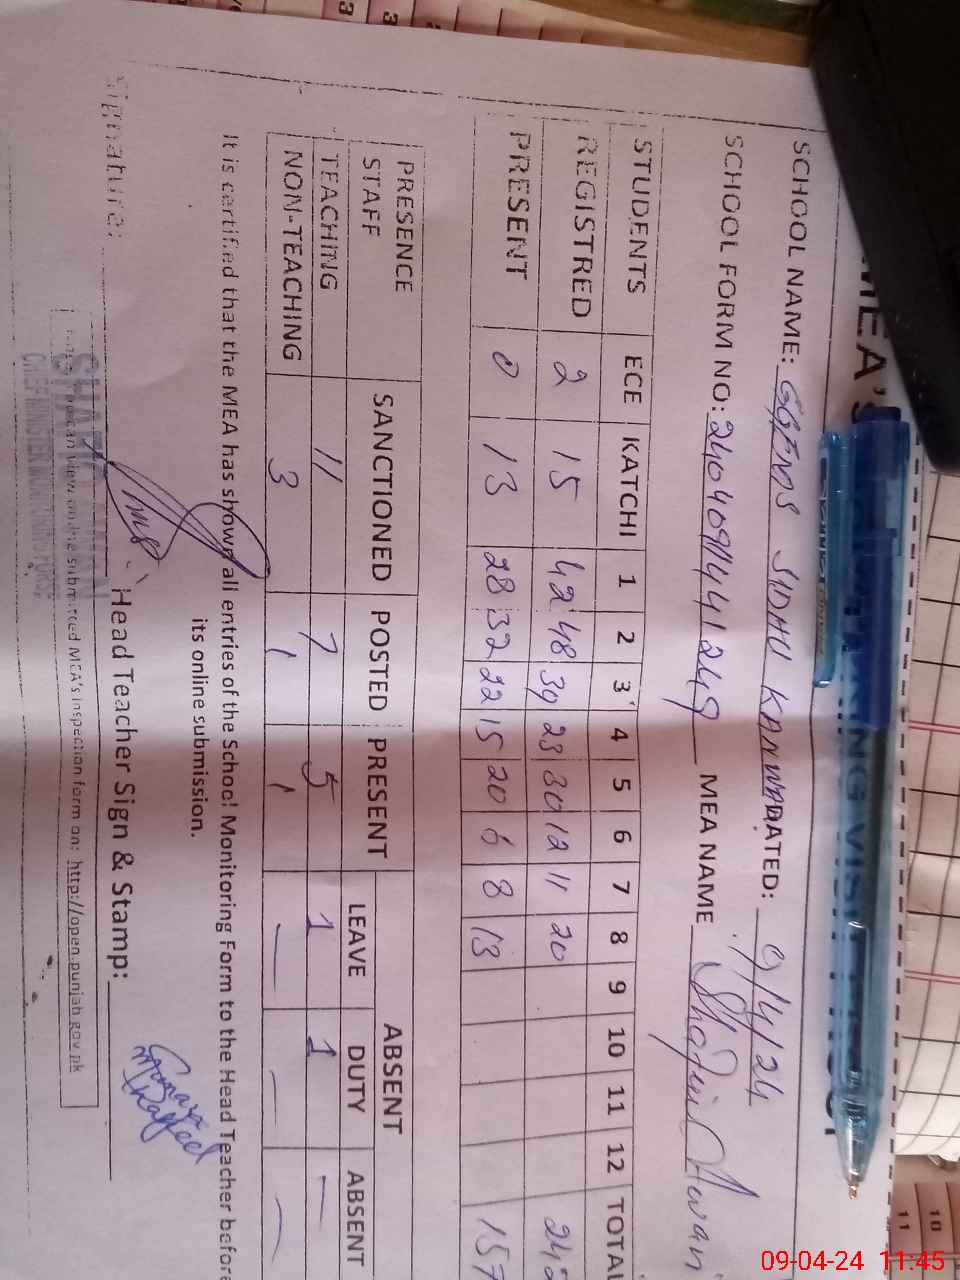 MEA'S
SCHOOL NAME: GGEMS SIDHU KANWA DATED: 9/4/24
SCHOOL FORM NO: 2404091441249 MEA NAME Shafiul Awan
STUDENTS ECE KATCHI 1 2 3 4 5 6 7 8 9 10 11 12 TOTAL
REGISTRED 2 15 42 48 39 23 30 12 11 20 242
PRESENT 0 13 28 32 22 15 20 6 8 13 157
PRESENCE STAFF SANCTIONED POSTED PRESENT ABSENT
LEAVE DUTY ABSENT
TEACHING 11 7 5 1 1 —
NON-TEACHING 3 1 1 — — —
It is certified that the MEA has shown all entries of the School Monitoring Form to the Head Teacher before
its online submission.
Signature: Head Teacher Sign & Stamp:
can view online submitted MEA's inspection form on: http://open.punjab.gov.pk
CHIEF MINISTER MONITORING FORCE
10
11
09-04-24 11:45